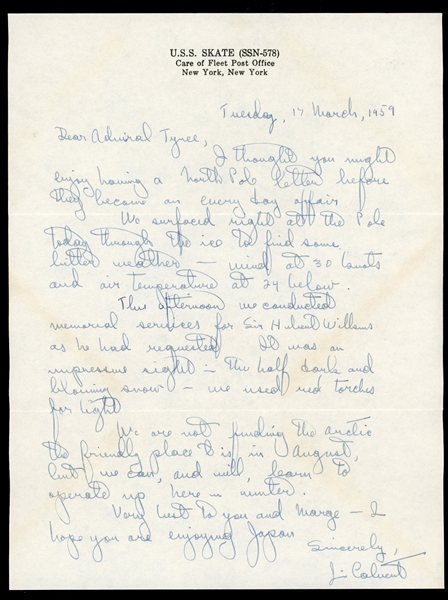 U.S.S. SKATE (SSN-578)
Care of Fleet Post Office
New York, New York
Tuesday, 17 March, 1959
Dear Admiral Tyree,
I thought you might
enjoy having a North Pole letter before
they become an every day affair
We surfaced right at the Pole
today through the ice to find some
bitter weather — wind at 30 knots
and air temperature at 24 below.
This afternoon we conducted
memorial services for Sir Hubert Wilkins
as he had requested. It was an
impressive sight — the half dark and
blowing snow — we used red torches
for light
We are not finding the arctic
the friendly place it is in August,
but we can, and will, learn to
operate up here in winter.
Very best to you and Marge — I
hope you are enjoying Japan
Sincerely,
Jim Calvert